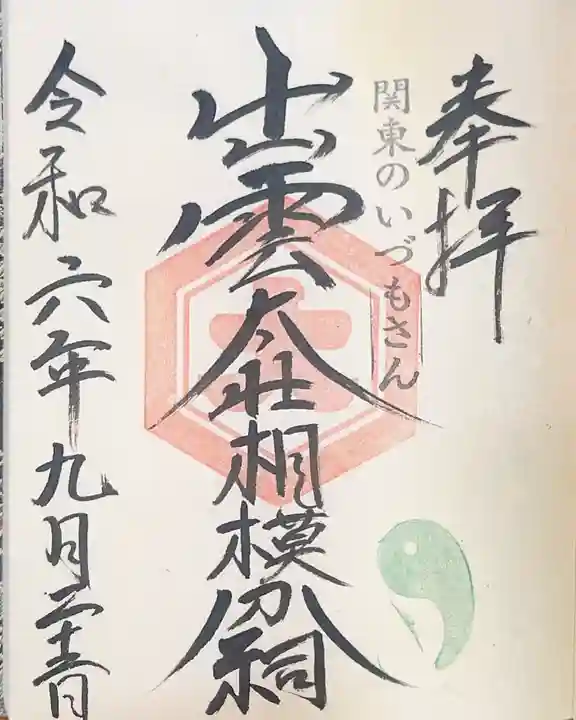 奉拝
関東のいづもさん
出雲大社相模分祠
令和六年九月